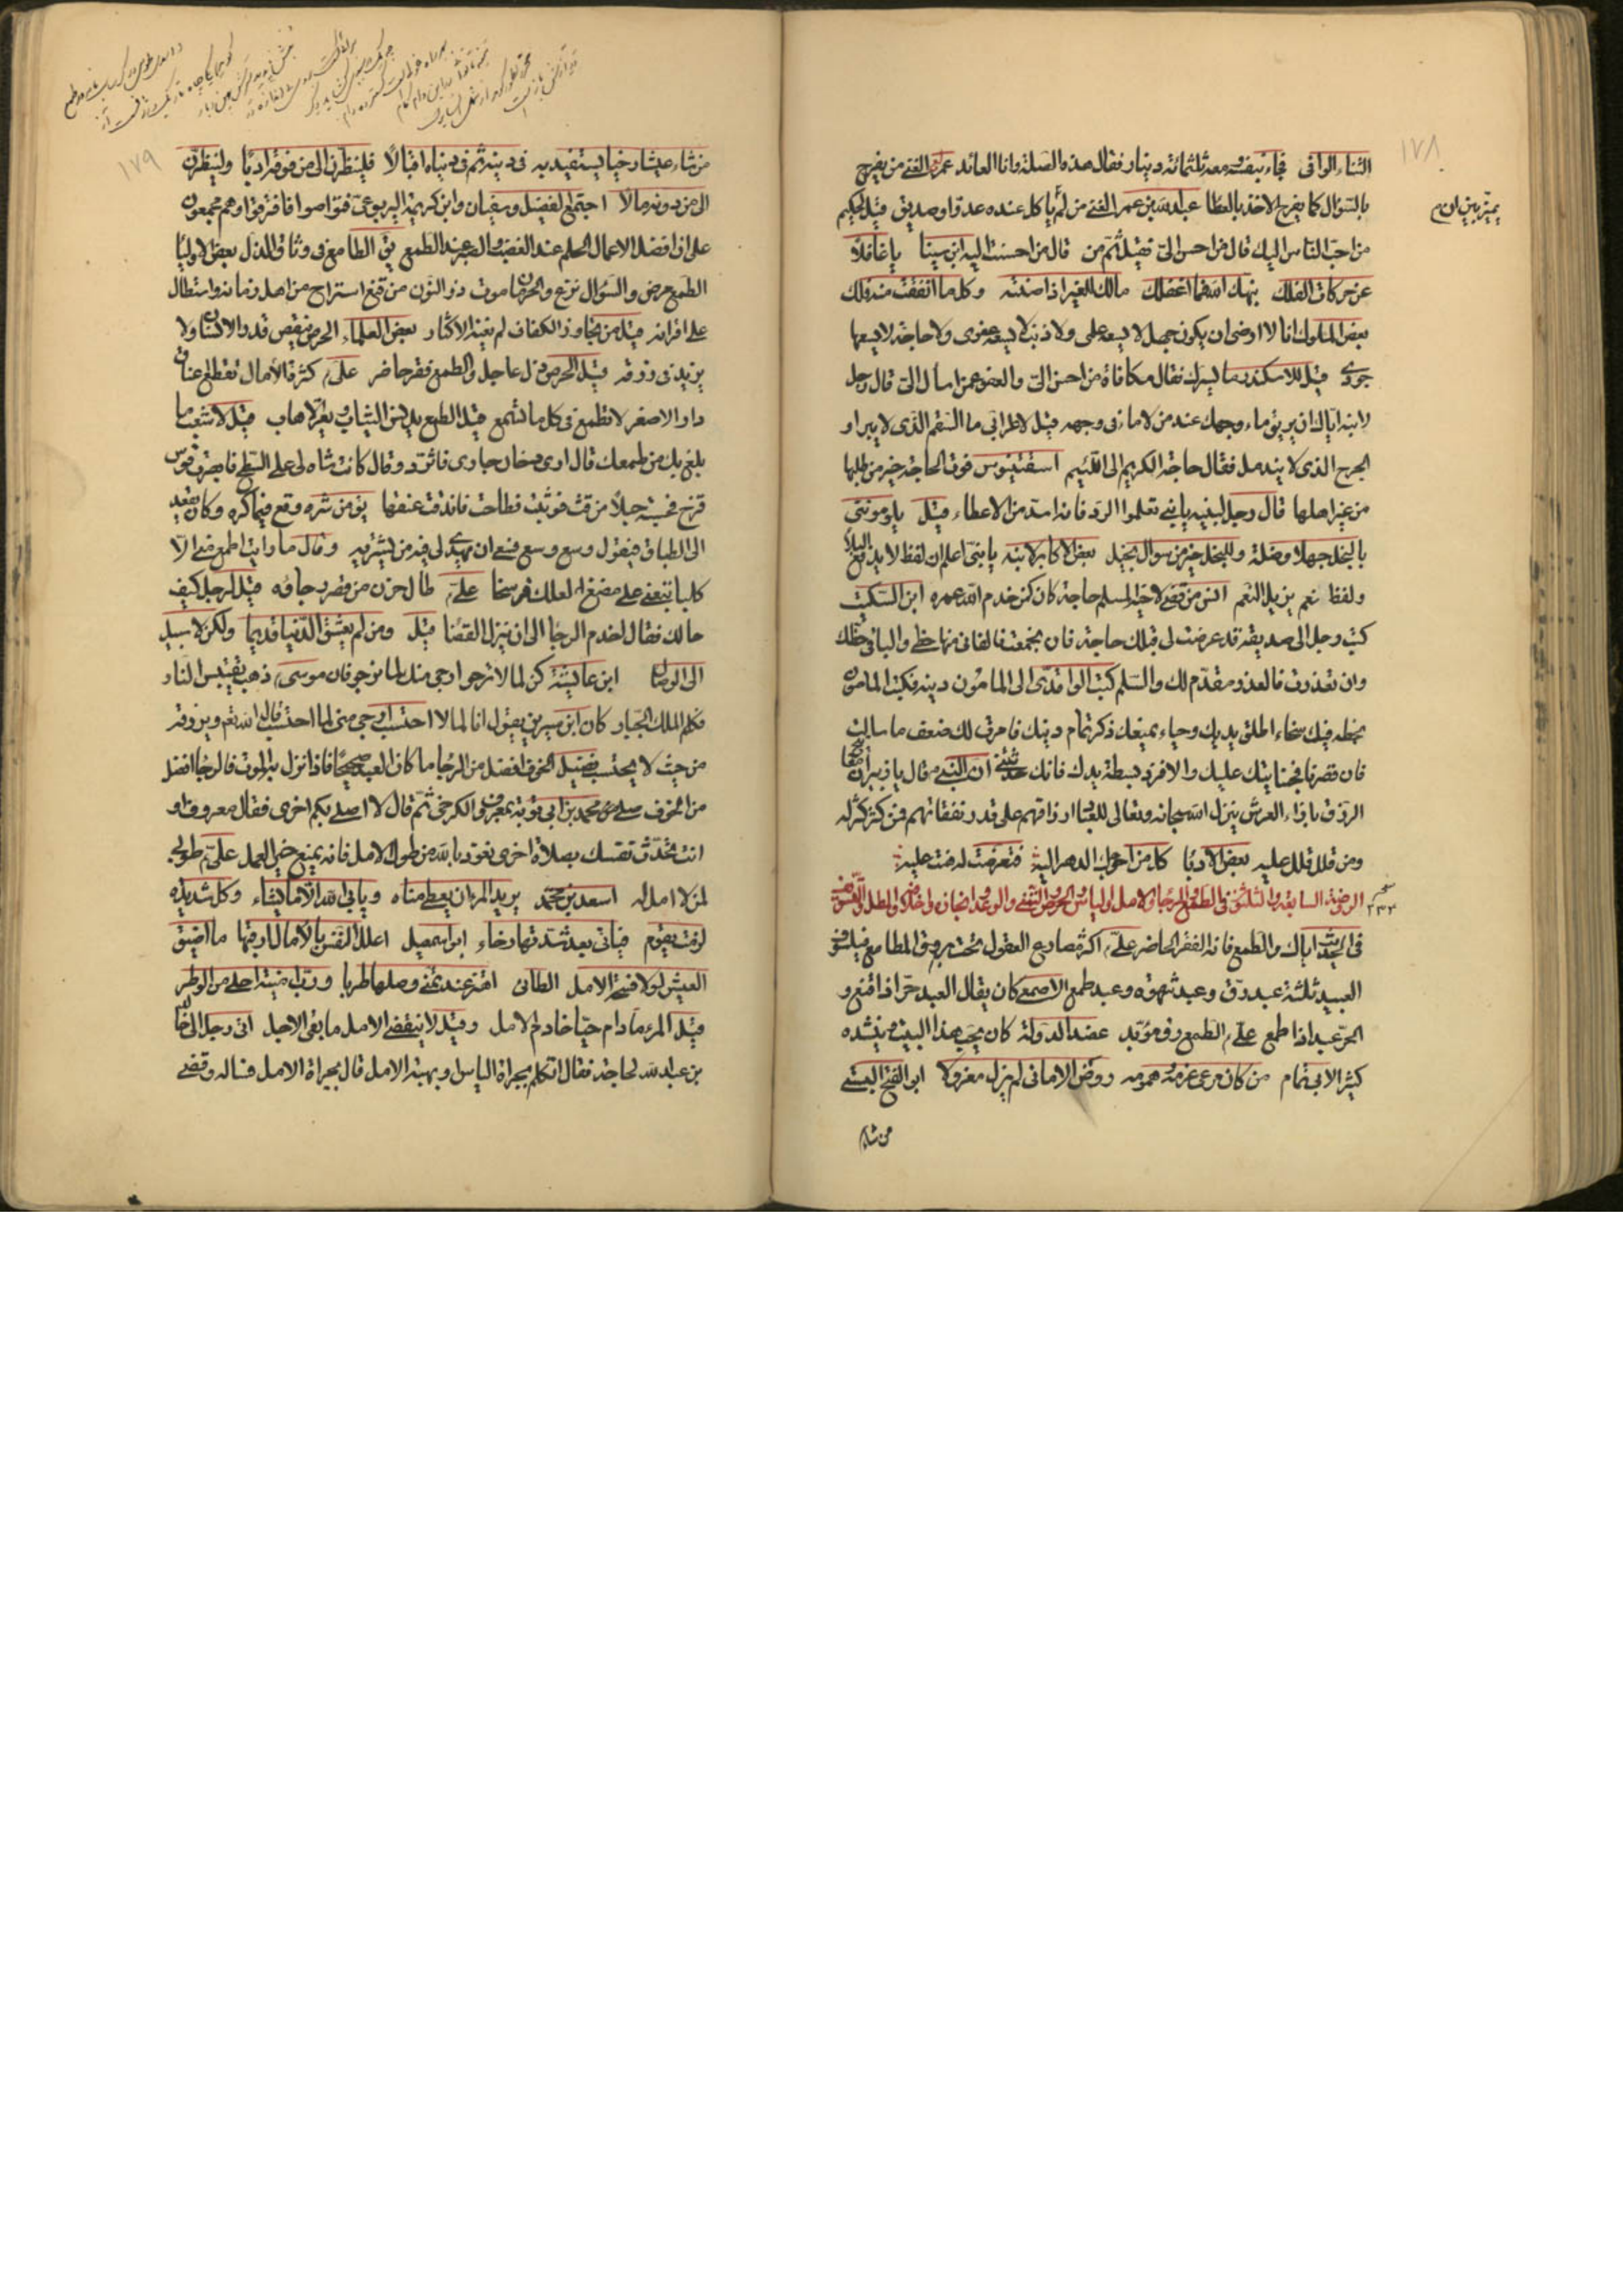 ١٧٨
الثناء الوافى فجاء بنفسه ومعه ثلثمائة دينار فقال هذه الصلة وانا العائد عمر الفتى من يفرح
بالسؤال كما يفرح الاخذ بالعطا عبدالله بن عمر الفتى من لم ياكل عنده عدوا وصديق قيل لحكيم
من احب الناس اليك قال من احسن الى فقيل ثم من قال من احسنت اليه ابن سينا يا غافلا
عن حركات الفلك نبهك الله فما اغفلك مالك للغير اذا صنته وكل ما انفقت منه فلك
بعض الملوك انا لا ارضى ان يكون جهل لا يسعه حلمى ولا ذنب لا يسعه عفوى ولا حاجة لا يسعها
جودى قيل للاسكندر ما يسرك فقال مكافاة من احسن الى والعفو عمن اسا الى قال رجل
لابنه اياك ان يريق ماء وجهك عند من لا ماء فى وجهه قيل لاعرابى ما السقم الذى لا يبرا و
الجرح الذى لا يندمل فقال حاجة الكريم الى اللئيم فوت الحاجة خير من طلبها
من غير اهلها قال رجل لبنيه يا بنى تعلموا الرد فانه اسد من الاعطاء قيل يلوموننى
بالبخل جهلا وضلة وللبخل خير من سوال بخيل بعض الاكابر لابنه يا بنى اعلم ان لفظ لا يدفع البلا
ولفظ نعم يزيل النعم انس من قضى لاخيه المسلم حاجة كان كمن خدم الله عمره ابن السكيت
كتب رجل الى صديقه قد عرضت لى قبلك حاجة فان نجحت فالفانى منها حظى والباقى حظك
وان تعذرت فالعذر مقدم لك والسلم كتب الواقدى الى المامون دينه فكتب المامون
بخطه فيك سخاء اطلق يديك وحياء يمنعك ذكر تمام دينك فامرت لك ضعف ما سالت
فان قصرنا فبجنايتك عليك والا فزد بسطة يدك فانك حدثتنى ان النبى ص قال يا زبير ان مفاتيح
الرزق بازاء العرش ينزل الله سبحانه وتعالى للعباد ارزاقهم على قدر نفقاتهم فمن كثر كثر له
ومن قلل قلل عليه بعض الادبا كل من احوجك الدهر اليه فتعرضت له هنت عليه
الروضة السابعة والثلثون فى الطمع والرجاء والامل والياس والحرص والتمنى والوعد وانجازه واخلافه والمطل والتسويف
فى الحديث اياك والطمع فانه الفقر الحاضر على ع اكثر مصارع العقول تحت بروق المطامع فيلسوف
العبيد ثلثة عبد رق وعبد شهوه وعبد طمع الاصمعى كان يقال العبد حر اذا قنع و
الحر عبد اذا طمع على ع الطمع رق مؤبد عضد الدولة كان يعجبه هذا البيت وينشده
كثيرا لابى تمام من كان مرعى عزمه وهمومه روض الامانى لم يزل مهزولا ابو الفتح البستى
من شاء
١٧٩
من شاء عيشا رخيا يستفيد به فى دينه ثم فى دنياه اقبالا فلينظرن الى من فوقه ادبا ولينظرن
الى من دونه مالا اجتمع الفضيل وسفيان وابن كريمة اليربوعى فتواصوا فافترقوا وهم مجمعون
على ان افضل الاعمال الحلم عند الغضب والصبر عند الطمع يق الطامع فى وثاق الذل بعض الاوليا
الطمع مرض والسؤال نزع والحرمان موت ذو النون من قنع استراح من اهل زمانه واستطال
على اقرانه قيل من تجاوز الكفاف لم يغنه الاكثار بعض العلماء الحرص ينقص قدر الانسان ولا
يزيد فى رزقه قيل الحرص ذل عاجل والطمع فقر حاضر على ع كثرة الآمال تقطع اعناق
داود الاصغر لا تطمع فى كل ما تسمع قيل الطمع يدنس الثياب ويعر الاهاب قيل لاشعب ما
بلغ بك من طمعك قال ارى دخان جارى فاثرد وقال كانت شاه لى على السطح فابصرت قوس
قزح فحسبته حبلا من قت فوثبت فطاحت فاندقت عنقها يق من شره وقع فيما كره وكان يقعد
الى الطباق فيقول وسع وسع فعسى ان يهدى لى فيه من يشتريه وقال ما رايت اطمع منى الا
كلبا تبعنى على مضغ العلك فرسخا على ع طال حزن من قصر رجاؤه قيل لرجل كيف
حالك فقال اخدم الرجا الى ان ينزل القضا قيل ومن لم يعشق الدنيا قديما ولكن لا سبيل
الى الوصال ابن عايشة كن لما لا ترجو ارجى منك لما ترجو فان موسى ع ذهب يقتبس النار
فكلم الملك الجبار كان ابن سيرين يقول انا لما لا احتسب ارجى منى لما احتسب قال الله تع ويرزقه
من حيث لا يحتسب فضيل الخوف افضل من الرجا ما كان العبد صحيحا فاذا نزل به الموت فالرجا افضل
من الخوف صلى محمد بن ابى توبة بمعروف الكرخى ثم قال لا اصلى بكم اخرى فقال معروف او
انت تحدث نفسك بصلاة اخرى نعوذ بالله من طول الامل فانه يمنع خير العمل على ع طوبى
لمن لا امل له اسعد بن محمد يريد المرء ان يعطى مناه ويابى الله الا ما يشاء وكل شديدة
نزلت بقوم فياتى بعد شدتها رخاء ابو اسمعيل اعلل النفس بالآمال ارقبها ما اضيق
العيش لولا فسحة الامل الطائى وصلها طربا ورب امنية احلى من الظفر
قيل المرء ما دام حيا خادم الامل وقيل لا ينقضى الامل ما بقى الاجل اتى رجل الى خالد
بن عبدالله لحاجة فقال اتكلم بجراة الياس وبهيبة الامل قال بجراة الامل فساله وقضى